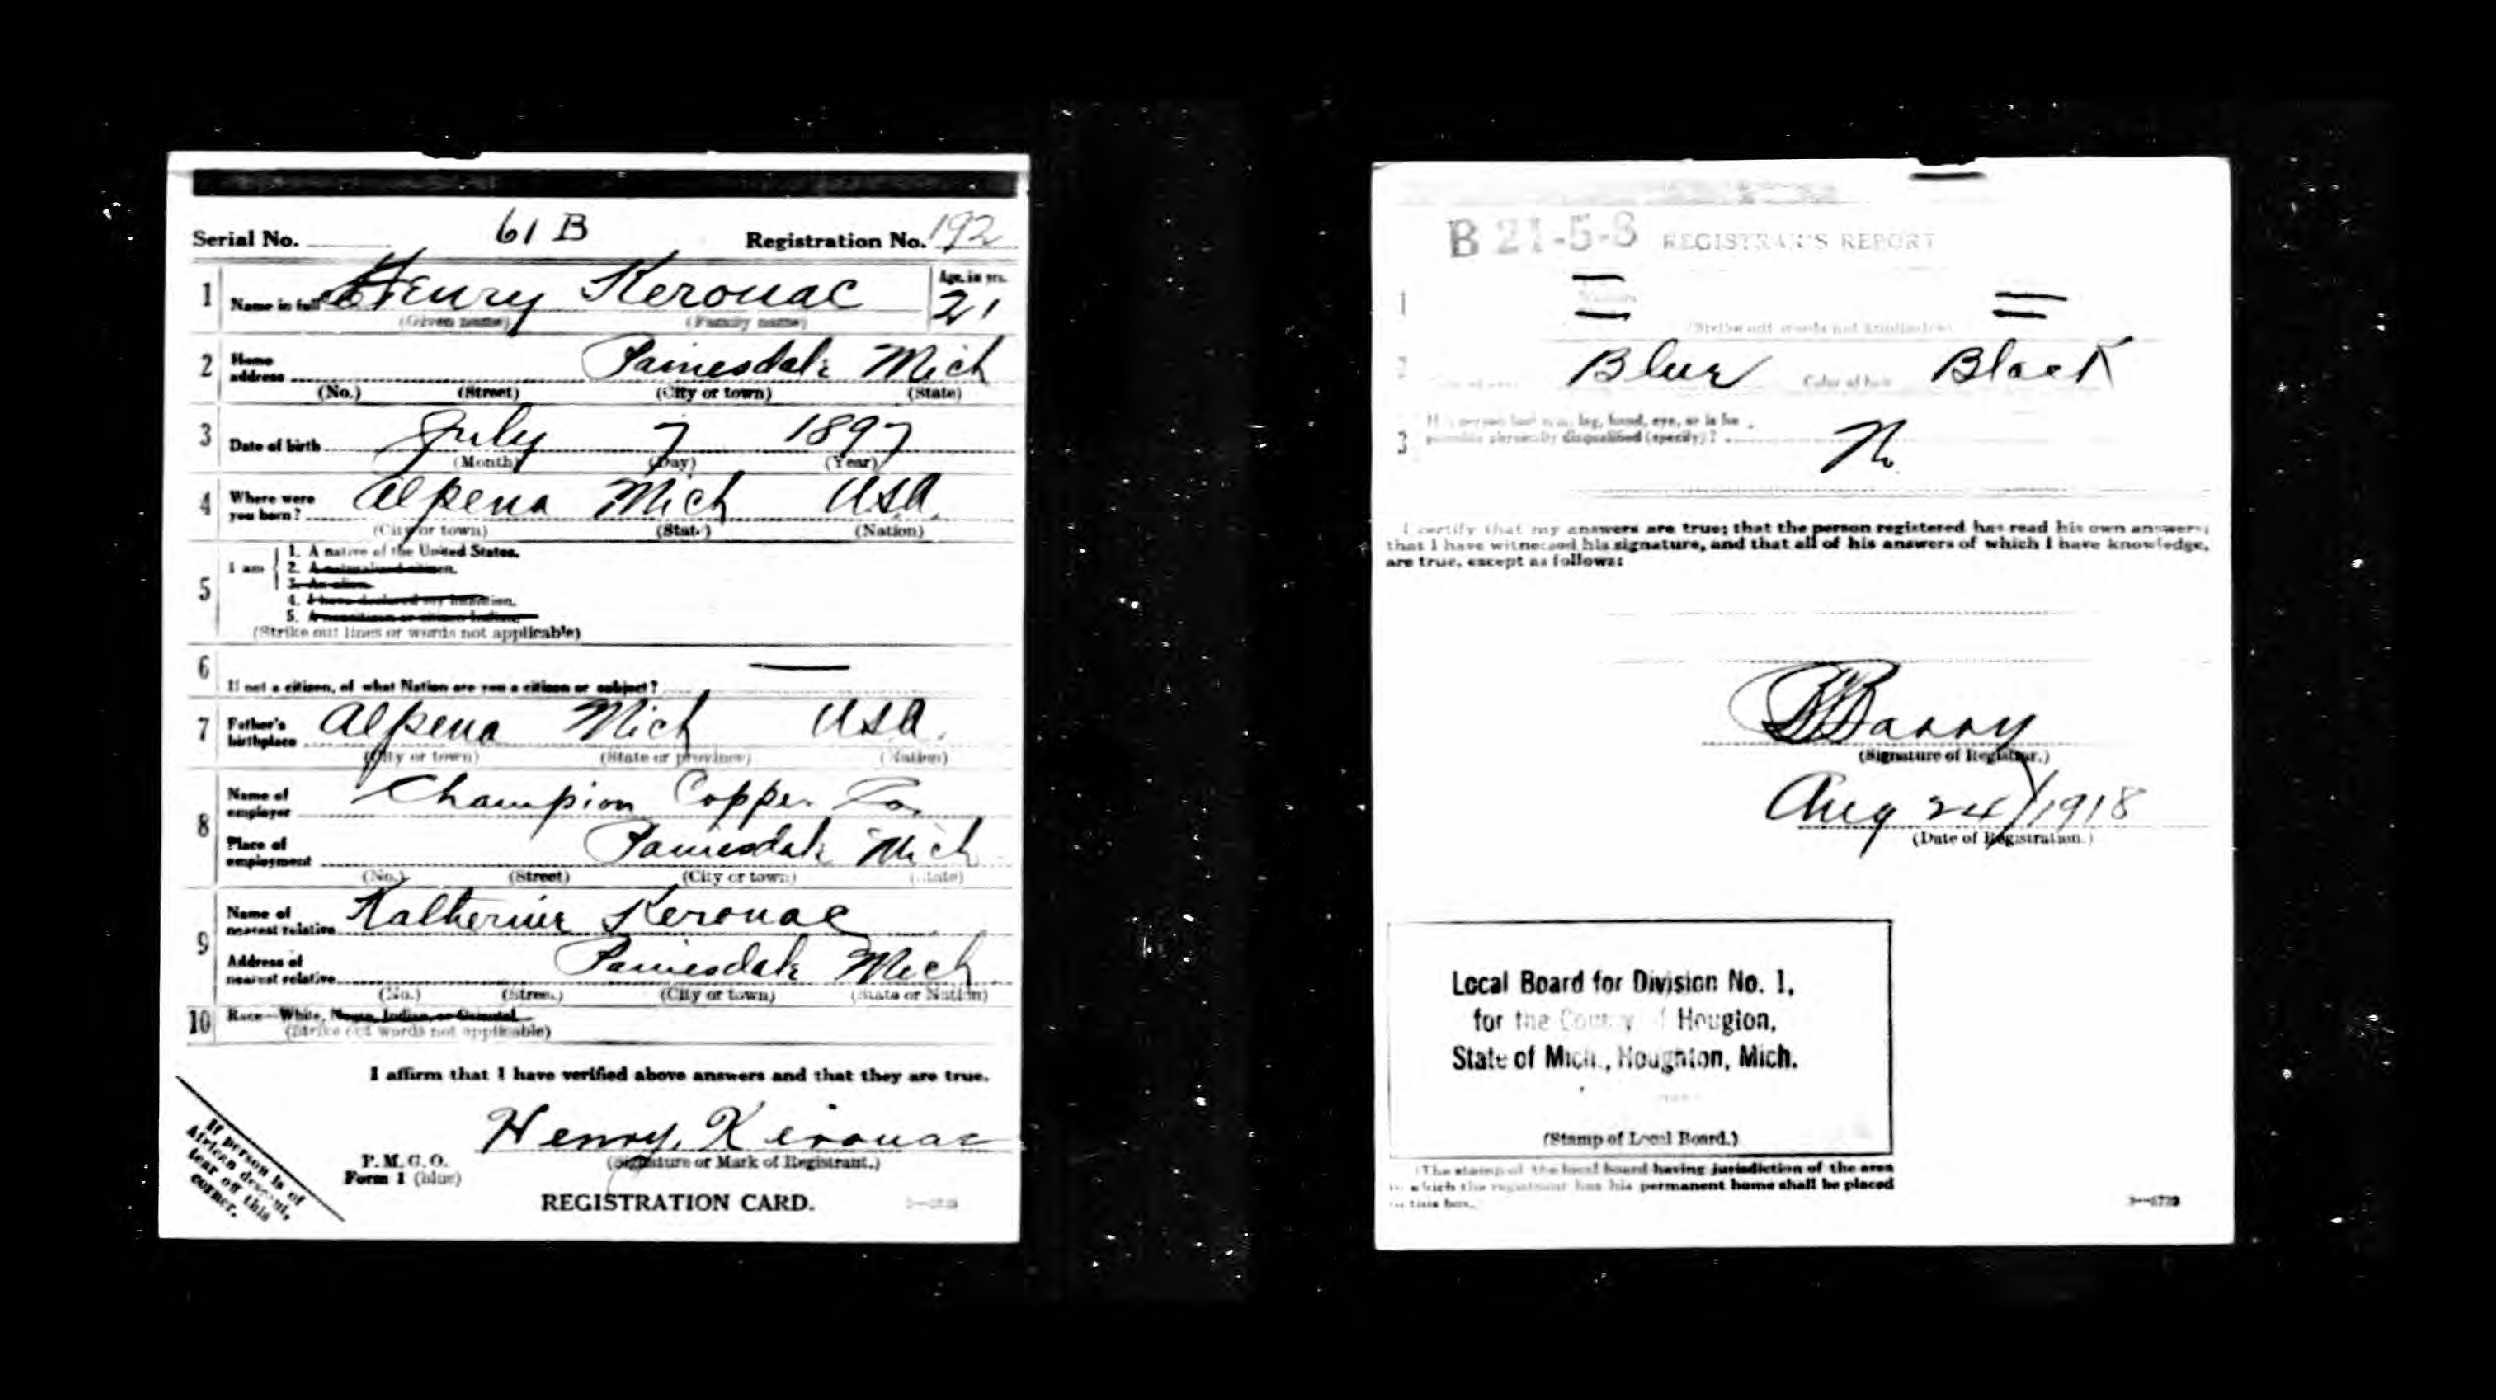 Serial No. 61 B Registration No. 192
1 Name in full Henry Kerouac Age, in yrs. 21
(Given name) (Family name)
2 Home address Painesdale Mich
(No.) (Street) (City or town) (State)
3 Date of birth July 7 1897
(Month) (Day) (Year)
4 Where were you born? Alpena Mich USA.
(City or town) (State) (Nation)
5 I am
1. A native of the United States.
2. A naturalized citizen.
3. An alien.
4. I have declared my intention.
5. A noncitizen or citizen Indian.
(Strike out lines or words not applicable)
6 If not a citizen, of what Nation are you a citizen or subject?
7 Father's birthplace Alpena Mich USA.
(City or town) (State or province) (Nation)
8 Name of employer Champion Copper Co.
Place of employment Painesdale Mich
(No.) (Street) (City or town) (State)
9 Name of nearest relative Katherine Kerouac
Address of nearest relative Painesdale Mich
(No.) (Street) (City or town) (State or Nation)
10 Race—White, Negro, Indian, or Oriental
(Strike out words not applicable)
I affirm that I have verified above answers and that they are true.
Henry Kerouac
(Signature or Mark of Registrant.)
P. M. G. O.
Form 1 (blue)
REGISTRATION CARD.
If person is of
African descent,
tear off this
corner.
B 21-5-8 REGISTRAR'S REPORT
1
(Strike out words not applicable)
2 Blue Color of hair Black
3 If person has lost arm, leg, hand, eye, or is he
palpably physically disqualified (specify)? No
I certify that my answers are true; that the person registered has read his own answers;
that I have witnessed his signature, and that all of his answers of which I have knowledge,
are true, except as follows:
Barry
(Signature of Registrar.)
Aug 24/1918
(Date of Registration.)
Local Board for Division No. 1,
for the County of Hougton,
State of Mich., Houghton, Mich.
(Stamp of Local Board.)
(The stamp of the local board having jurisdiction of the area
in which the registrant has his permanent home shall be placed
in this box.)